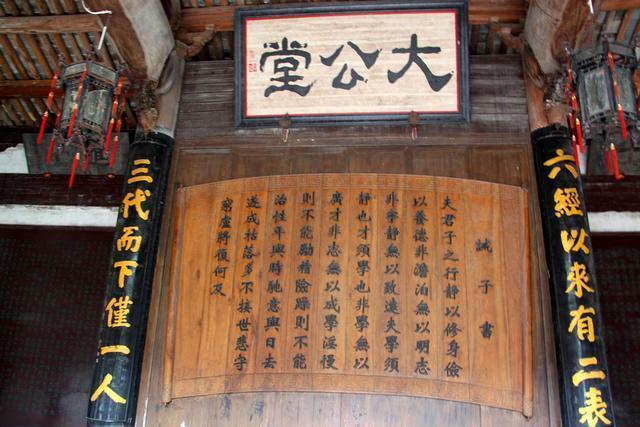 大公堂
六經以來有二表
三代而下僅一人
誡子書
夫君子之行靜以修身儉
以養德非澹泊無以明志
非寧靜無以致遠夫學須
靜也才須學也非學無以
廣才非志無以成學淫慢
則不能勵精險躁則不能
治性年與時馳意與日去
遂成枯落多不接世悲守
窮廬將復何及